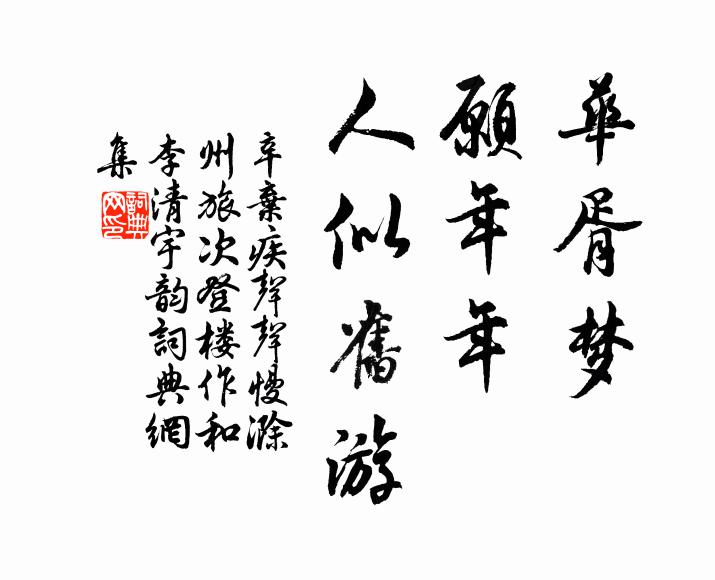 華胥梦
願年年
人似舊游
辛棄疾聲聲慢滁
州旅次登楼作和
李清宇韵詞典網
集
詞典
网印